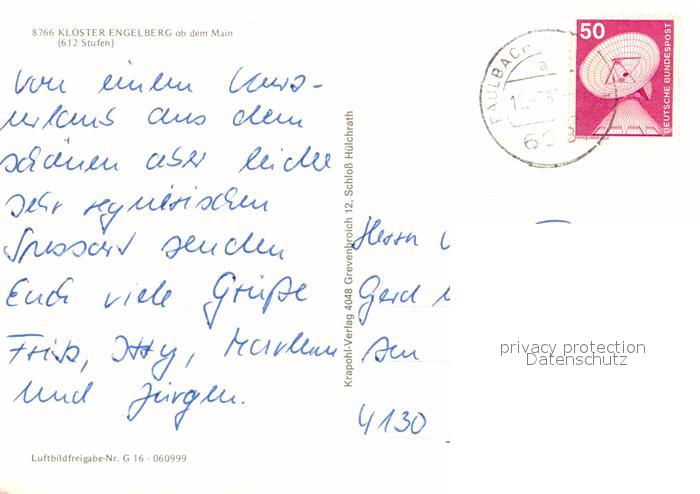 8766 KLOSTER ENGELBERG ob dem Main
(612 Stufen)
Von einem Kurz-
urlaub aus dem
schönen aber leider
sehr regnerischen
Spessart senden
Euch viele Grüße
Fritz, Itty,
und Jürgen.
Luftbildfreigabe-Nr. G 16 - 060999
Krapohl-Verlag 4048 Grevenbroich 12, Schloß Hülchrath
FAULBACH
a
50
DEUTSCHE BUNDESPOST
Herrn
Gerd
4130
privacy protection
Datenschutz